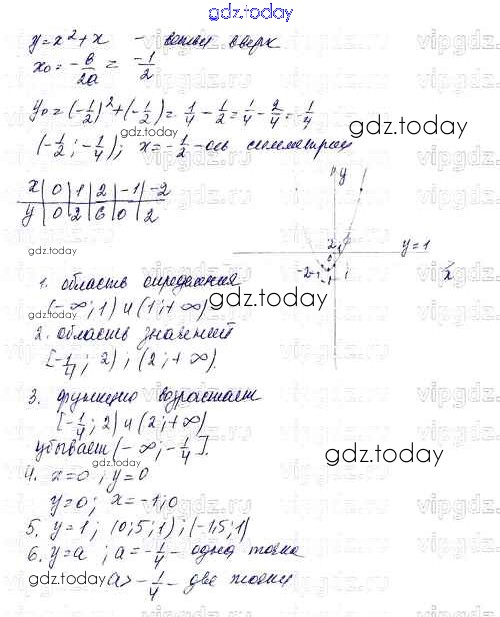 gdz.today
y = x² + x - ветви вверх
x₀ = -b/2a = -1/2
y₀ = (-1/2)² + (-1/2) = 1/4 - 1/2 = 1/4 - 2/4 = -1/4
gdz.today
gdz.today
(-1/2; -1/4); x = -1/2 - ось симметрии
x | 0 | 1 | 2 | -1 | -2
y | 0 | 2 | 6 | 0 | 2
y
2
y=1
-2 -1
1
x
gdz.today
1. область определения
(-∞; 1) и (1; +∞)
gdz.today
gdz.today
2. область значений
[-1/4; 2); (2; +∞).
3. функцию возрастает
[-1/4; 2) и (2; +∞)
gdz.today
убывает (-∞; -1/4].
gdz.today
gdz.today
4. x=0; y=0
y=0; x=-1; 0
5. y=1; (0,5; 1); (-1,5; 1)
6. y=a; a=-1/4 - одна точка
gdz.today
a>-1/4 - две точки
gdz.today
vipgdz.ru